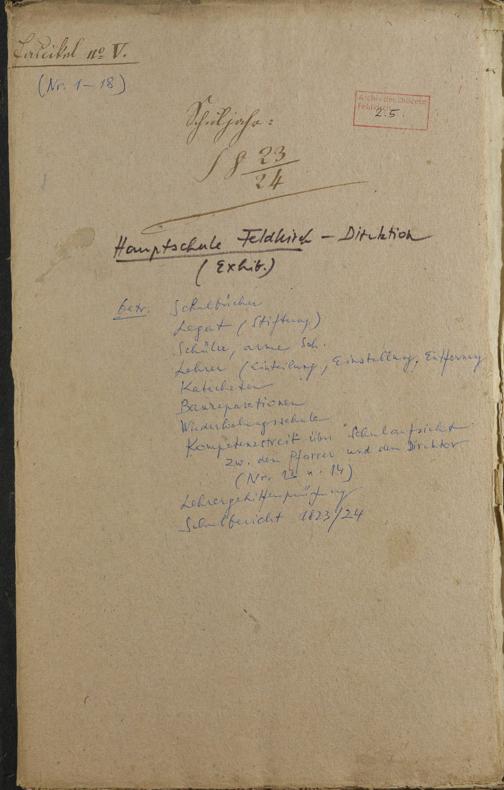 Fascikel no V.
(Nr. 1-18)
Archiv der Diözese
Feldkirch
2.5.
Schuljahr:
18 23/24
Hauptschule Feldkirch - Direktion
(Exhib.)
betr. Schulbücher
Legat (Stiftung)
Schüler, arme Sch.
Lehrer (Einteilung, Einstellung, Entfernung
Katecheten
Baureparationen
Wiederholungsschule
Kompetenzstreit über Schulaufsicht
zw. dem Pfarrer und dem Direktor
(Nr. 13 u. 14)
Lehrergehilfenprüfung
Schulbericht 1823/24